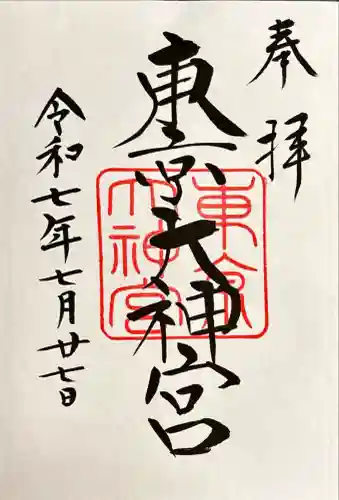 奉拝
東京大神宮
東京大神宮
令和七年七月廿七日